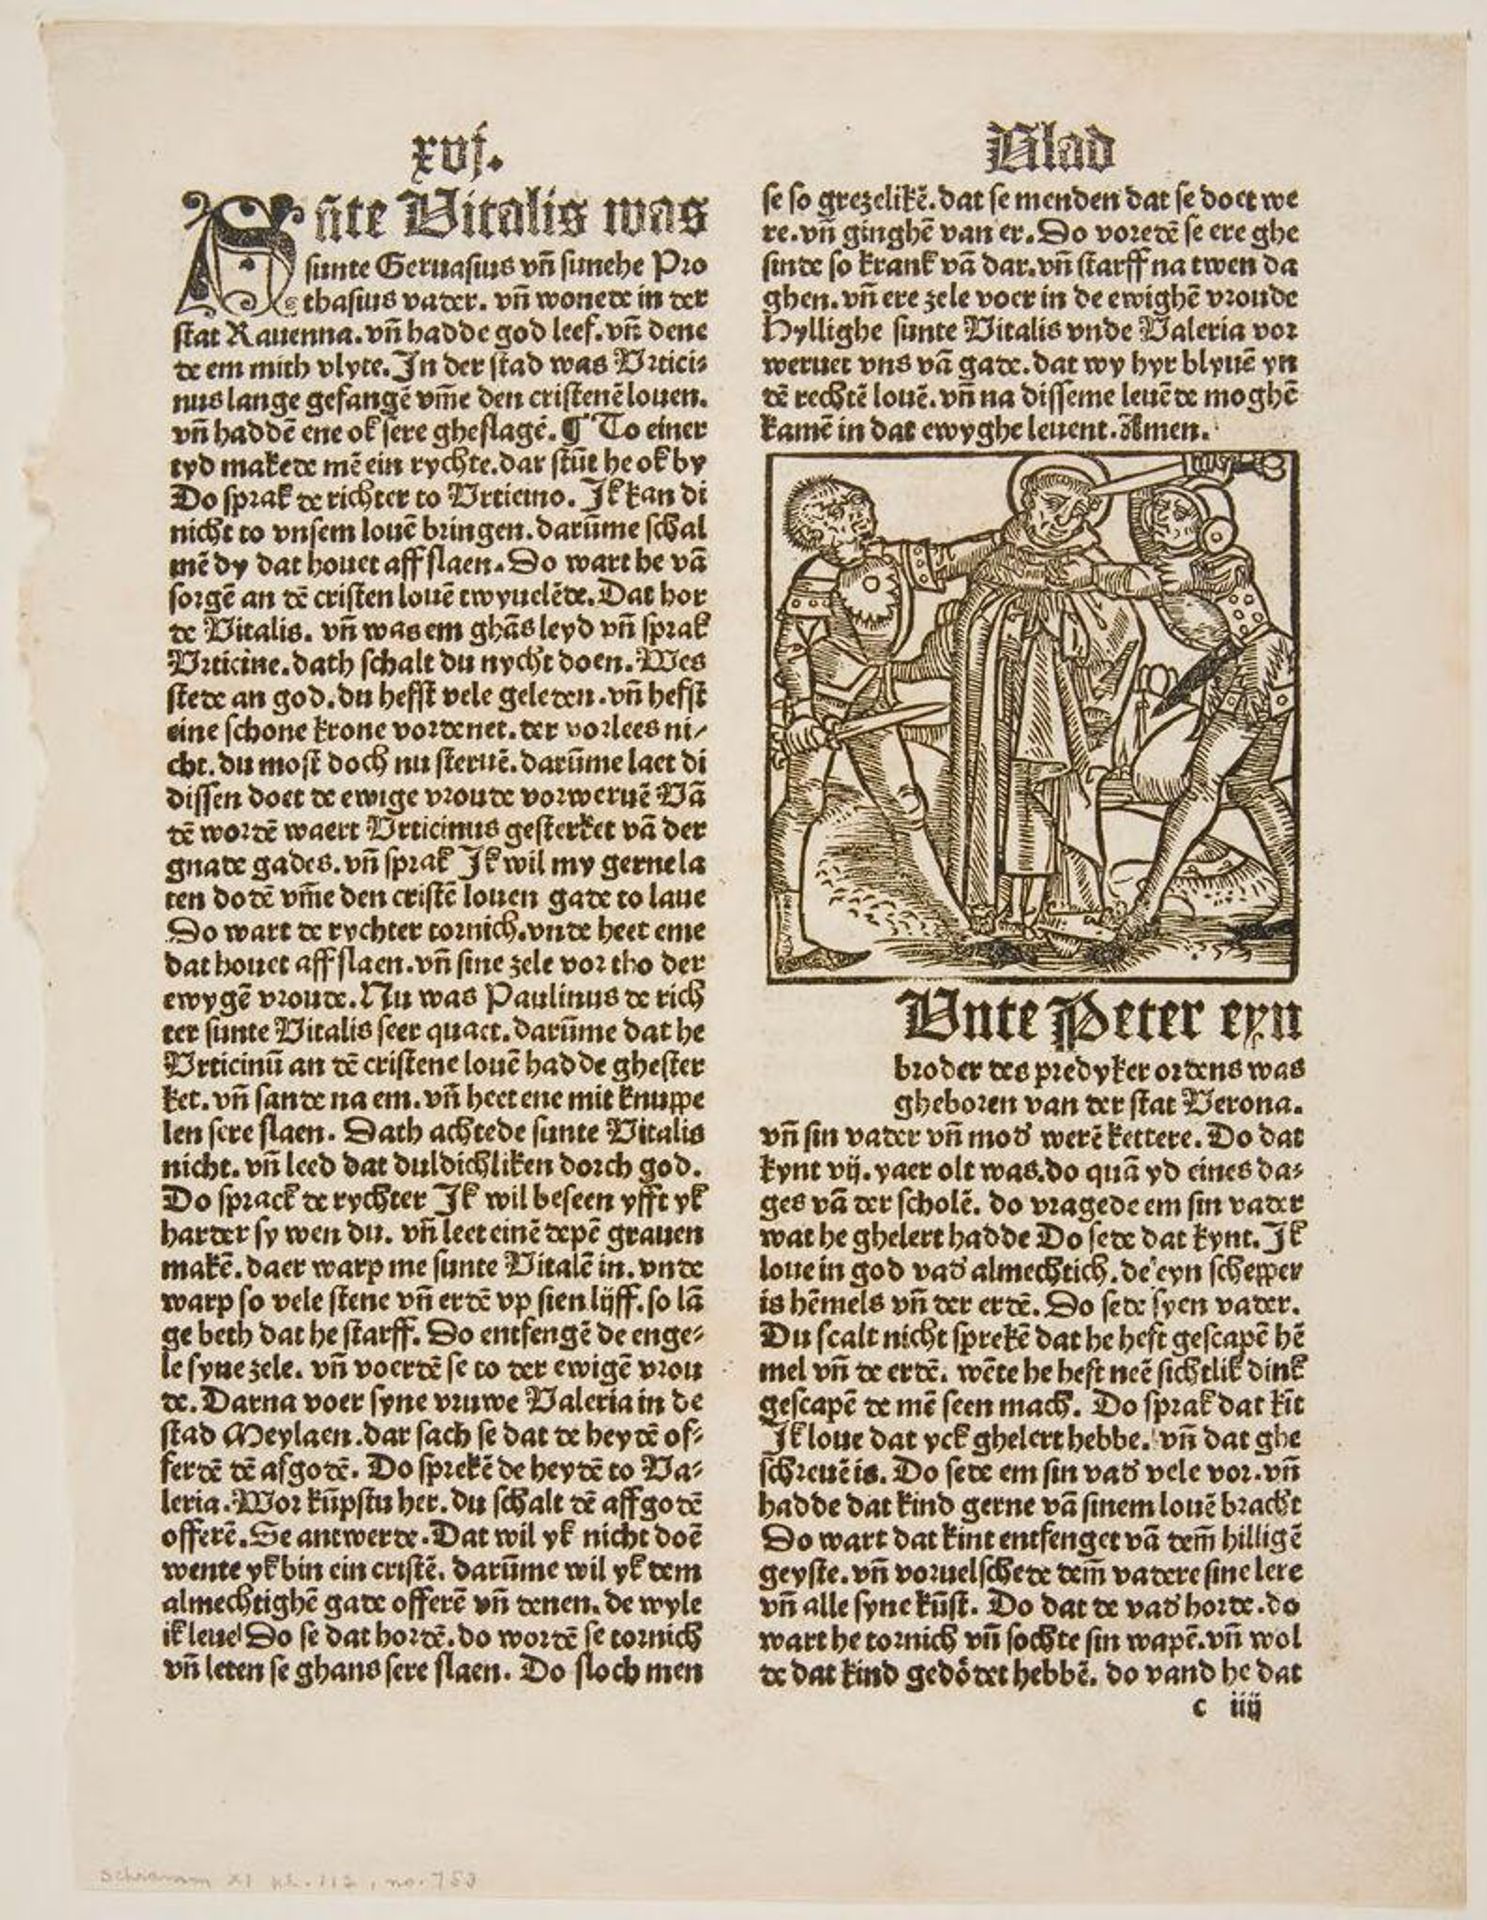 xvj.
Blad
Sūte Vitalis was
sunte Geruasius vn̄ sunehe Pro
thasius vader. vn̄ wonede in der
stat Rauenna. vn̄ hadde god leef. vn̄ dene
de em mith vlyte. In der stad was Vrtici⸗
nus lange gefangē vm̄e den cristenē louen.
vn̄ haddē ene ok sere gheslagē. ¶ To einer
tyd makede mē ein rychte. dar stūt he ok by
Do sprak de richter to Vrticino. Ik kan di
nicht to vnsem louē bringen. darūme schal
mē dy dat houet aff slaen. Do wart he vā
sorgē an dē cristen louē twyuelēde. Dat hor
de Vitalis. vn̄ was em ghās leyd vn̄ sprak
Vrticine. dath schalt du nycht doen. Wes
stede an god. du hefst vele geleden. vn̄ hefst
eine schone krone vordenet. der vorlees ni⸗
cht. du most doch nu steruē. darūme laet di
dissen doet de ewige vroude vorweruē Vā
dē wordē waert Vrticinus gesterket vā der
gnade gades. vn̄ sprak Ik wil my gerne la
ten dodē vm̄e den cristē louen gade to laue
Do wart de rychter tornich. vnde heet eme
dat houet aff slaen. vn̄ sine zele vor tho der
ewygē vroude. Nu was Paulinus de rich
ter sunte Vitalis seer quaet. darūme dat he
Vrticinū an dē cristene louē hadde ghester
ket. vn̄ sande na em. vn̄ heet ene mit knuppe
len sere slaen. Dath achtede sunte Vitalis
nicht. vn̄ leed dat duldichliken dorch god.
Do sprack de rychter Ik wil beseen yfft yk
harder sy wen du. vn̄ leet einē depē grauen
makē. daer warp me sunte Vitalē in. vnde
warp so vele stene vn̄ erdē vp sien lijff. so lā
ge beth dat he starff. Do entfengē de enge⸗
le syne zele. vn̄ voerdē se to der ewigē vrou
de. Darna voer syne vruwe Valeria in de
stad Meylaen. dar sach se dat de heydē of⸗
ferdē dē afgodē. Do sprekē de heydē to Va⸗
leria. Wor kūpstu her. du schalt dē affgodē
offerē. Se antwerde. Dat wil yk nicht doē
wente yk bin ein cristē. darūme wil yk dem
almechtighē gade offerē vn̄ denen. de wyle
ik leue Do se dat hordē. do wordē se tornich
vn̄ leten se ghans sere slaen. Do sloch men
se so grezelikē. dat se menden dat se doet we
re. vn̄ ginghē van er. Do voredē se ere ghe
sinde so krank vā dar. vn̄ starff na twen da
ghen. vn̄ ere zele voer in de ewighē vroude
Hyllighe sunte Vitalis vnde Valeria vor
weruet vns vā gade. dat wy hyr blyuē yn
dē rechtē louē. vn̄ na disseme leuēde moghē
kamē in dat ewyghe leuent. Amen.
Vnte Peter eyn
broder des predyker ordens was
gheboren van der stat Verona.
vn̄ sin vader vn̄ mod' werē kettere. Do dat
kynt vij. yaer olt was. do quā yd eines da⸗
ges vā der scholē. do vragede em sin vader
wat he ghelert hadde Do sede dat kynt. Ik
loue in god vad' almechtich. de eyn schepper
is hēmels vn̄ der erdē. Do sede syen vader.
Du scalt nicht sprekē dat he heft gescapē hē
mel vn̄ de erdē. wēte he heft neē sichtlik dink
gescapē de mē seen mach. Do sprak dat kīt
Ik loue dat yck ghelert hebbe. vn̄ dat ghe
schreuē is. Do sede em sin vad' vele vor. vn̄
hadde dat kind gerne vā sinem louē bracht
Do wart dat kint entfenget vā dem̄ hilligē
geyste. vn̄ voruelschede dem̄ vadere sine lere
vn̄ alle syne kūst. Do dat de vad' horde. do
wart he tornich vn̄ sochte sin wapē. vn̄ wol
de dat kind gedödet hebbē. do vand he dat
c iiij
Schramm XI pl. 112, no. 753